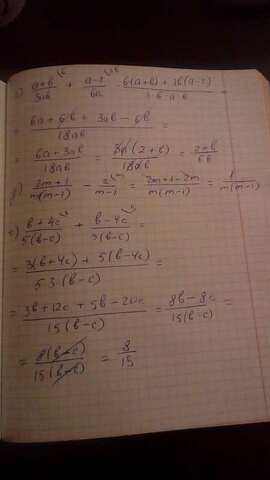 (a+b)/3ab + (a-2)/6a = (6(a+b) + 3b(a-2))/(3·6·a·b) =
= (6a + 6b + 3ab - 6b)/18ab =
= (6a + 3ab)/18ab = 3a(2+b)/18ab = (2+b)/6b
(2m+1)/m(m-1) - 2/(m-1) = (2m+1-2m)/m(m-1) = 1/m(m-1)
e) (b+4c)/5(b-c) + (b-4c)/3(b-c) =
= (3(b+4c) + 5(b-4c))/5·3(b-c) =
= (3b + 12c + 5b - 20c)/15(b-c) = (8b - 8c)/15(b-c) =
= 8(b-c)/15(b-c) = 8/15